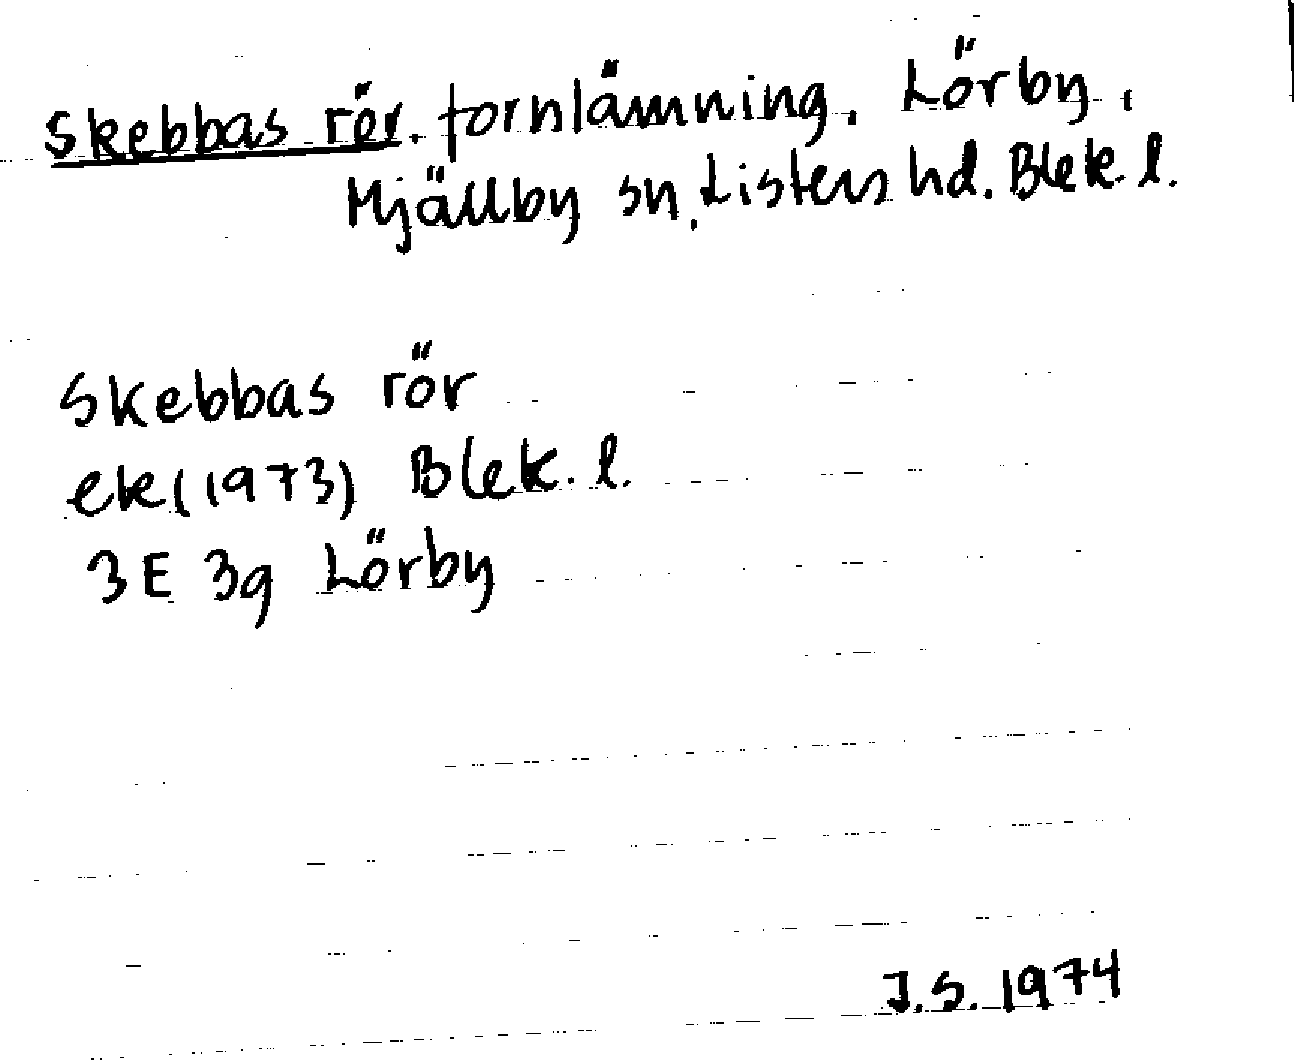 Skebbas rör. fornlämning. Lörby,
Mjällby sn, Listers hd. Blek. l.
Skebbas rör
ek (1973) Blek. l.
3E 3g Lörby
J.S. 1974